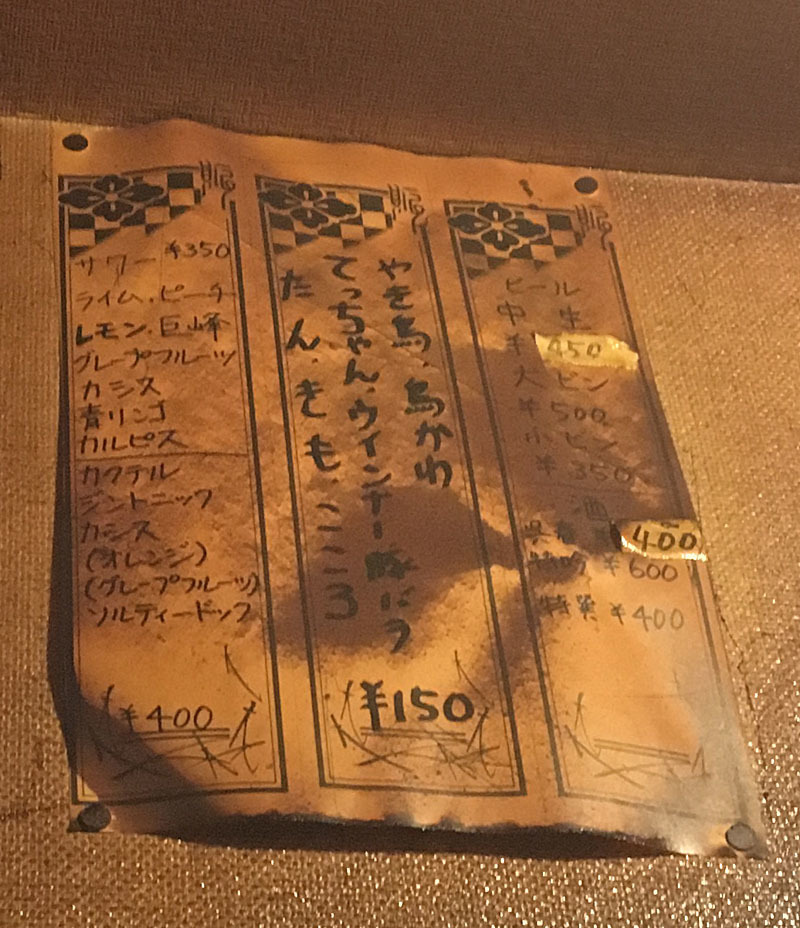 サワー ¥350
ライム・ピーチ
レモン・巨峰
グレープフルーツ
カシス
青リンゴ
カルピス
カクテル
ジントニック
カシス
(オレンジ)
(グレープフルーツ)
ソルティードッグ
¥400
やき鳥・鳥かわ
てっちゃん・ウインナー豚にう
たん・きも・こころ
¥150
ビール
中生
¥450
大ビン
¥500
小ビン
¥350
酒
400
特吟 ¥600
特選 ¥400